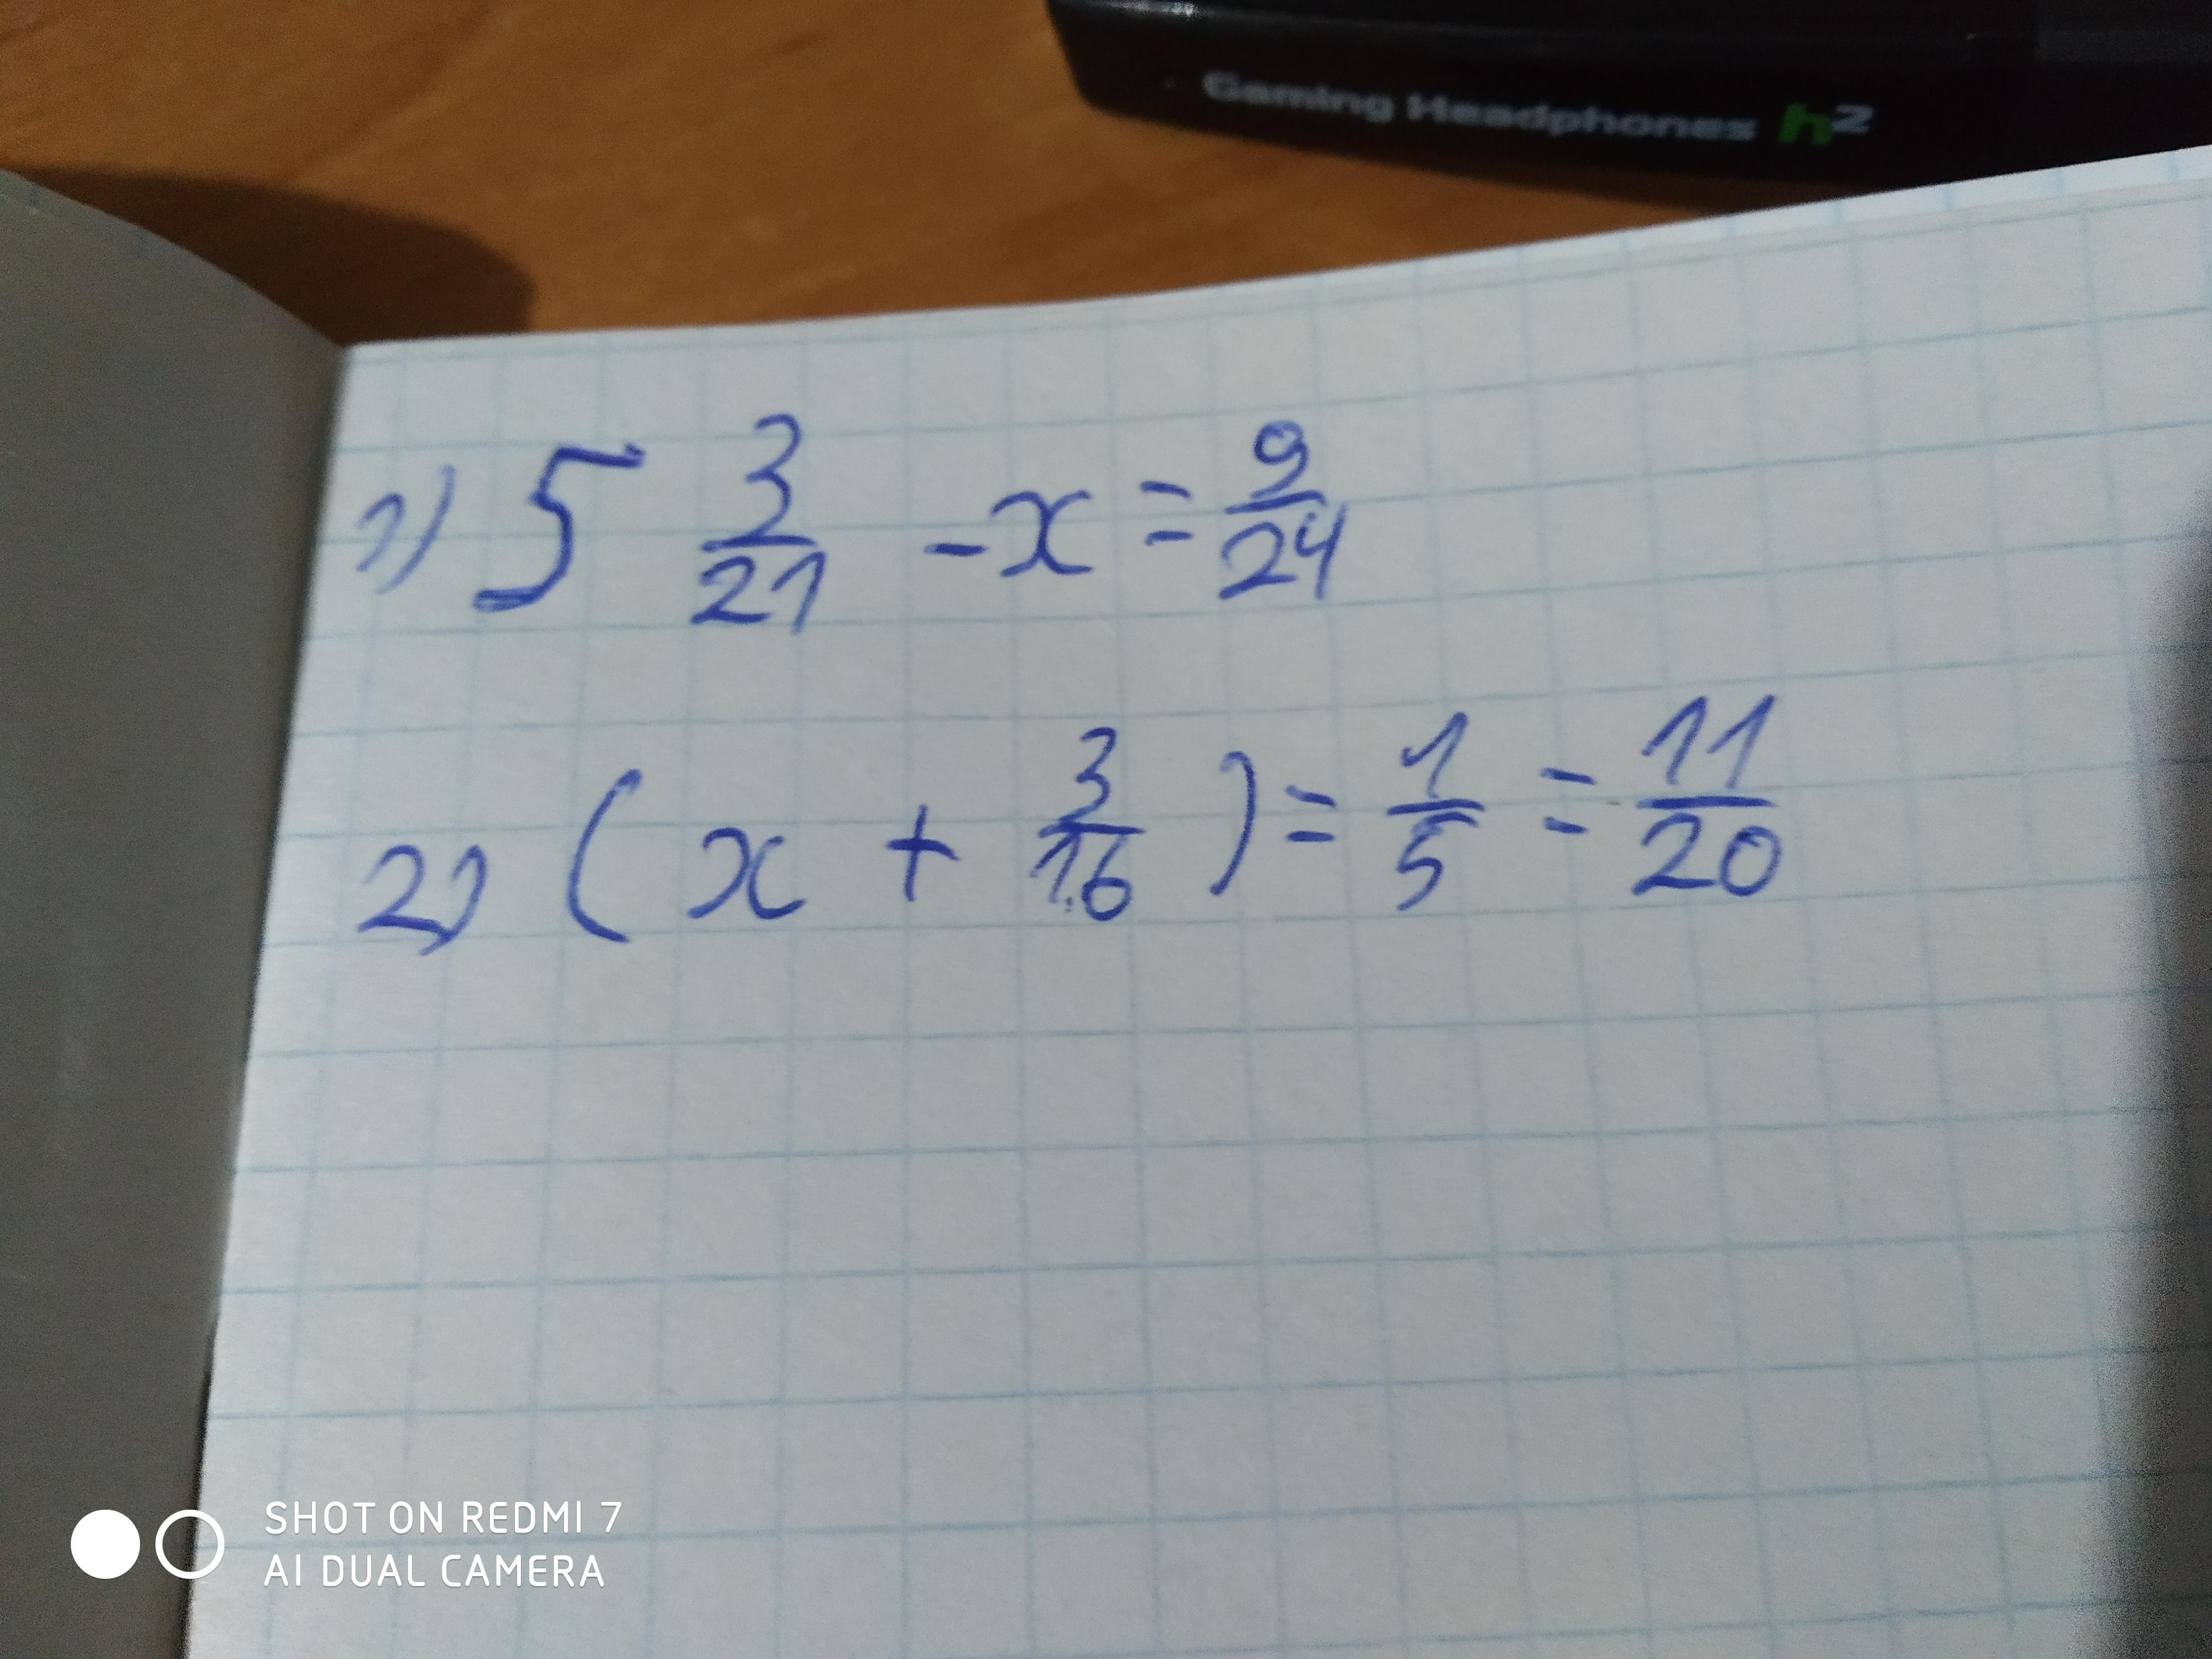 Gaming Headphones h²
1) 5 3/21 - x = 9/24
2) ( x + 3/16 ) = 1/5 = 11/20
SHOT ON REDMI 7
AI DUAL CAMERA